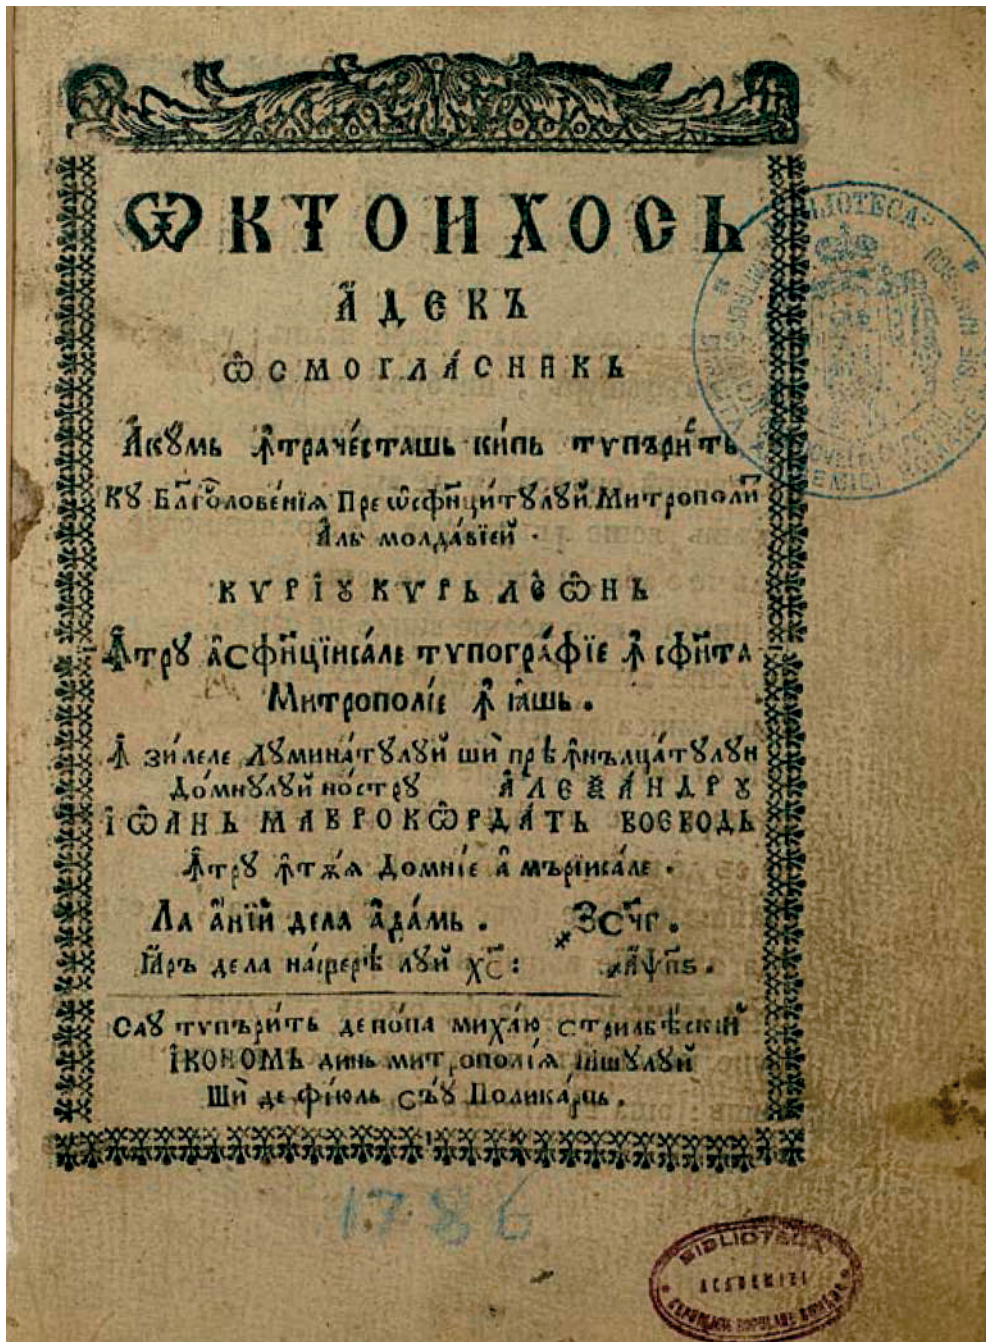 Ѿктоихось
А҆декъ
Ѡ҆смогла́сникь
А҆кꙋмь ꙟ҆трачéсташь ки́пь тѵпъри́ть
Кꙋ Бл҃гⷭ҇ловéнїѧ Прⷺѡ҆сфи҃нци́тꙋлꙋй Митрополи́т
А҆ль молда́вїей ·
Кѵрі́ꙋ кѵрь леѡ҆́нь
Ꙟ҆трꙋ а҆сфи҃нцїиса́ле тѵпогра́фїе ꙟ҆ сфн҃та
Митропо́лїе ꙟ҆ ꙗ҆́шь .
Ꙟ҆ зи́леле Лꙋмина́тꙋлꙋй шѝ прѣꙟ҆нълца́тꙋлꙋи
До́мнꙋлꙋй но́стрꙋ А҆леѯа́ндрꙋ
Іѡ҆а́нь Маврокѡрда́ть воевода
Ꙟ҆трꙋ ꙟ҆тѫ́ѧ Домні́е а҆ мърїиса́ле .
Ла а҆́нїй дела А҆да́мь . ҂ЗСЧГ .
Ꙗ҆ръ дела на́щерѣ лꙋй хс҃ : ҂АѰПЅ .
Саꙋ тѵпъри́ть де по́па миха́ю стрилбѣ́скїй
І҆коно́мь динь митропо́лїѧ ꙗ҆́шꙋлꙋй
Шѝ де фі́юль съ́ꙋ Полика́рпь .
1786
BIBLIOTECA
ACADEMIEI
REPUBLICII POPULARE ROMÂNE